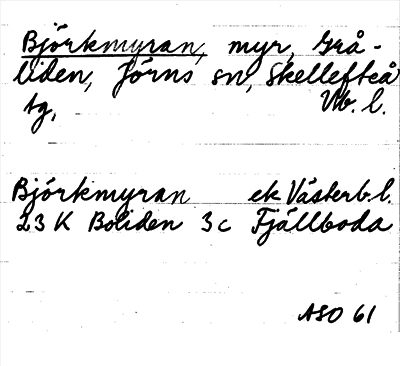 Björkmyran, myr, Grå-
liden, Jörns sn, Skellefteå
tg, Vb. l.
Björkmyran ek Västerb. l.
23 K Boliden 3c Fjällboda
ASO 61